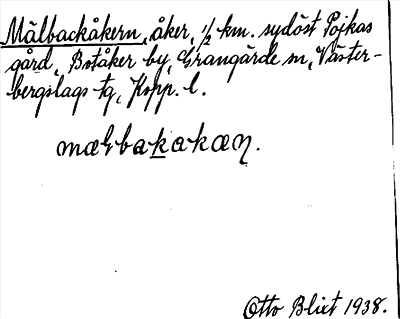 Målbackåkern, åker, ½ km. sydöst Pojkas
gård, Botåker by, Grangärde sn, Väster-
bergslags tg, Kopp. l.
Otto Blixt 1938.